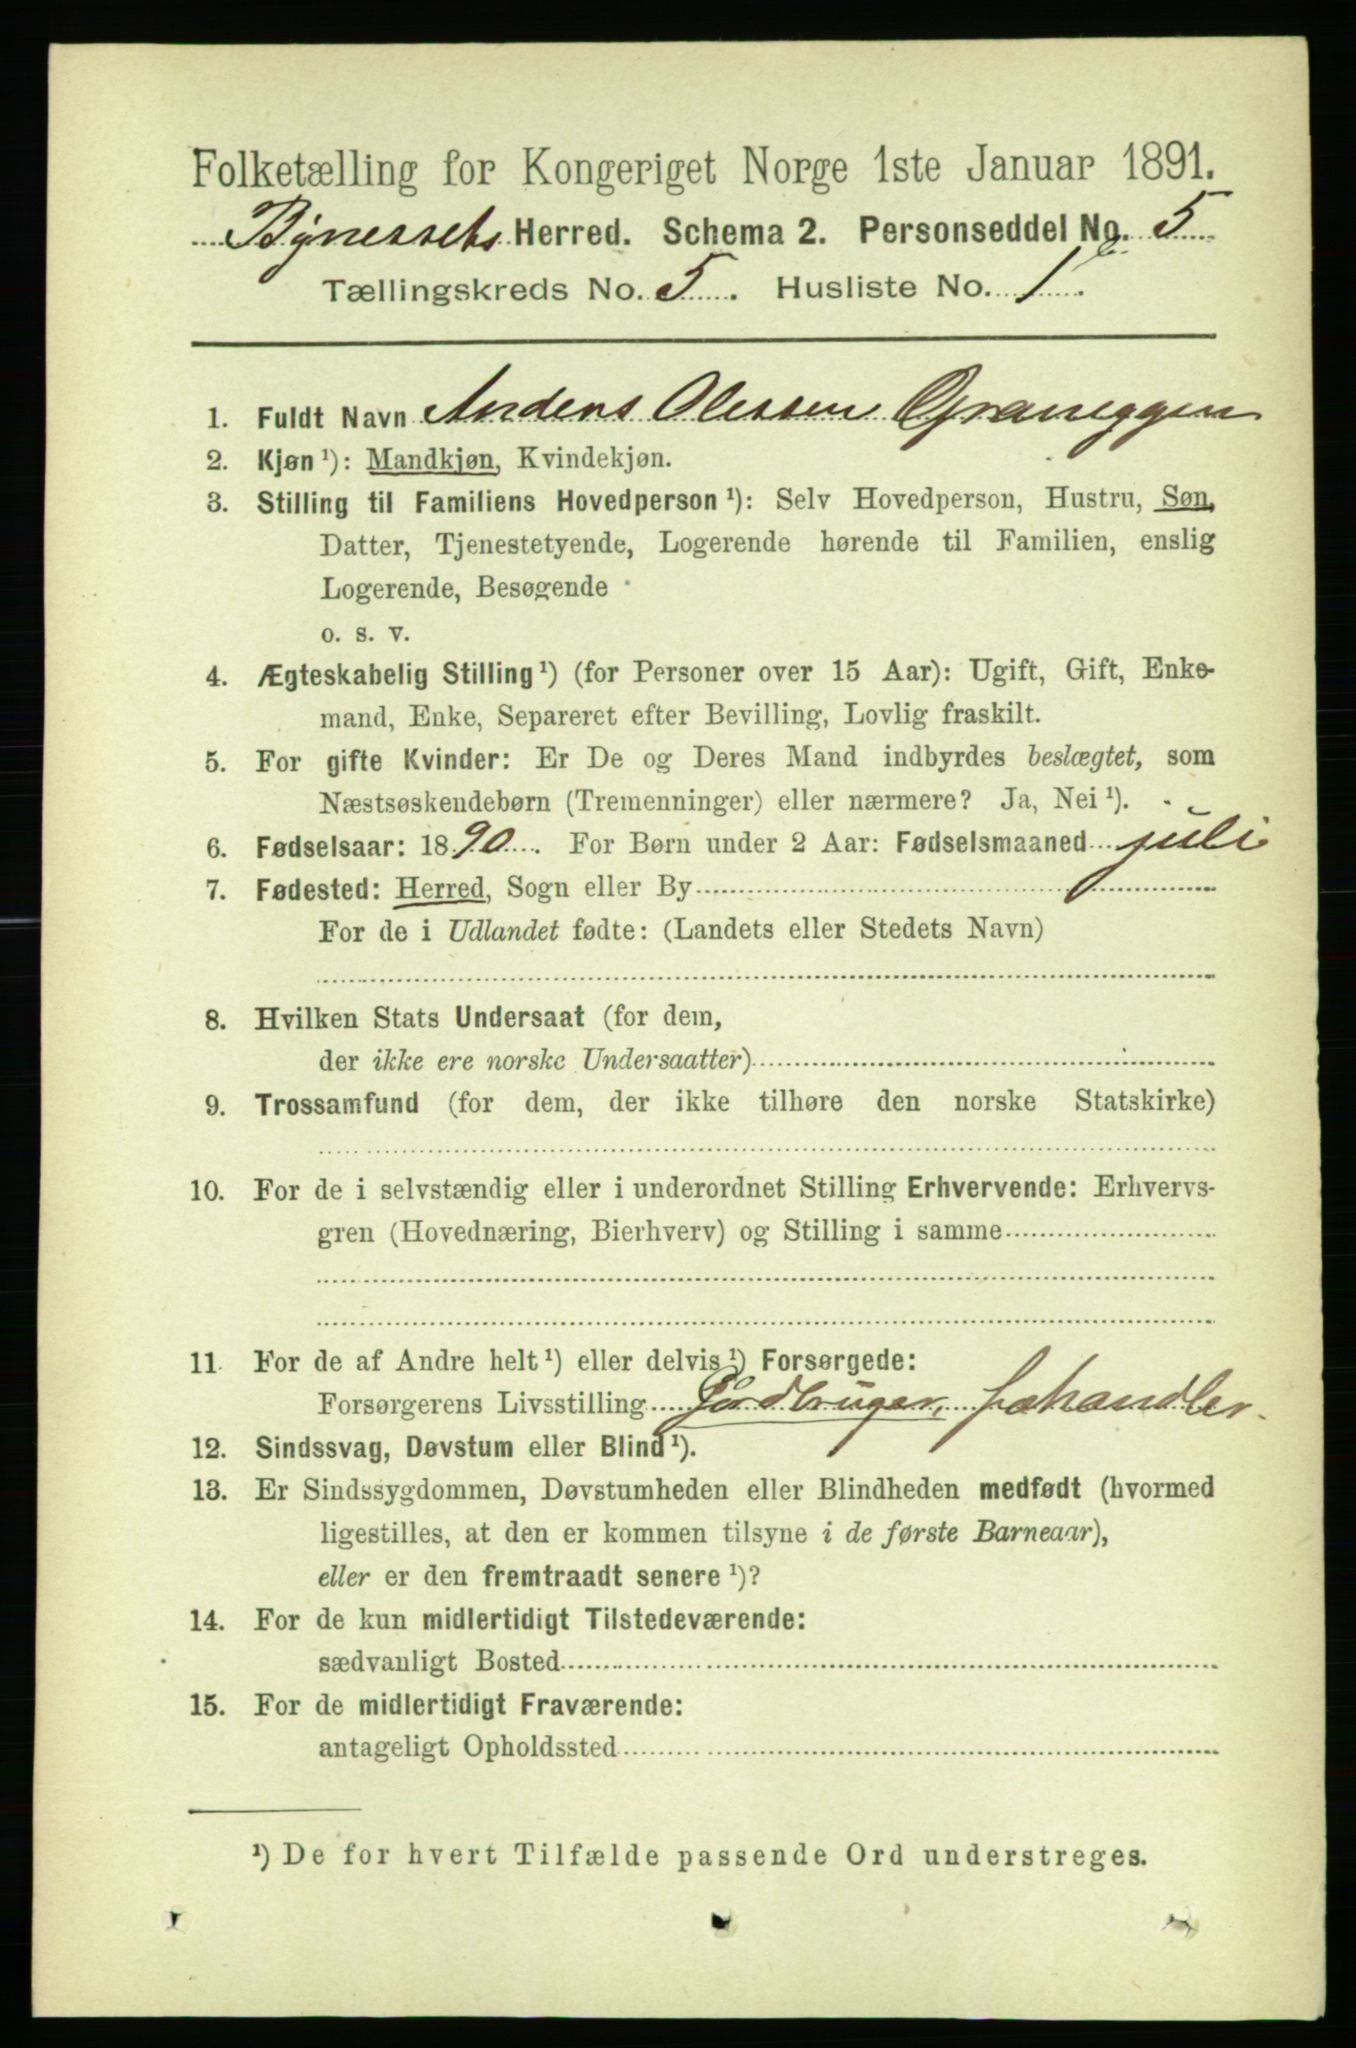 Folketælling for Kongeriget Norge 1ste Januar 1891.
Bynessets Herred. Schema 2. Personseddel No. 5
Tællingskreds No. 5. Husliste No. 1.
1. Fuldt Navn Anders Olessen Graneggen
2. Kjøn ¹): Mandkjøn, Kvindekjøn.
3. Stilling til Familiens Hovedperson ¹): Selv Hovedperson, Hustru, Søn,
Datter, Tjenestetyende, Logerende hørende til Familien, enslig
Logerende, Besøgende
o. s. v.
4. Ægteskabelig Stilling ¹) (for Personer over 15 Aar): Ugift, Gift, Enke-
mand, Enke, Separeret efter Bevilling, Lovlig fraskilt.
5. For gifte Kvinder: Er De og Deres Mand indbyrdes beslægtet, som
Næstsøskendebørn (Tremenninger) eller nærmere? Ja, Nei ¹).
6. Fødselsaar: 1890. For Børn under 2 Aar: Fødselsmaaned juli
7. Fødested: Herred, Sogn eller By
For de i Udlandet fødte: (Landets eller Stedets Navn)
8. Hvilken Stats Undersaat (for dem,
der ikke ere norske Undersaatter)
9. Trossamfund (for dem, der ikke tilhøre den norske Statskirke)
10. For de i selvstændig eller i underordnet Stilling Erhvervende: Erhvervs-
gren (Hovednæring, Bierhverv) og Stilling i samme
11 For de af Andre helt ¹) eller delvis ¹) Forsørgede:
Forsørgerens Livsstilling Jordbruger, fæhandler.
12. Sindssvag, Døvstum eller Blind ¹).
13. Er Sindssygdommen, Døvstumheden eller Blindheden medfødt (hvormed
ligestilles, at den er kommen tilsyne i de første Barneaar),
eller er den fremtraadt senere ¹)?
14. For de kun midlertidigt Tilstedeværende:
sædvanligt Bosted
15. For de midlertidigt Fraværende:
antageligt Opholdssted
¹) De for hvert Tilfælde passende Ord understreges.